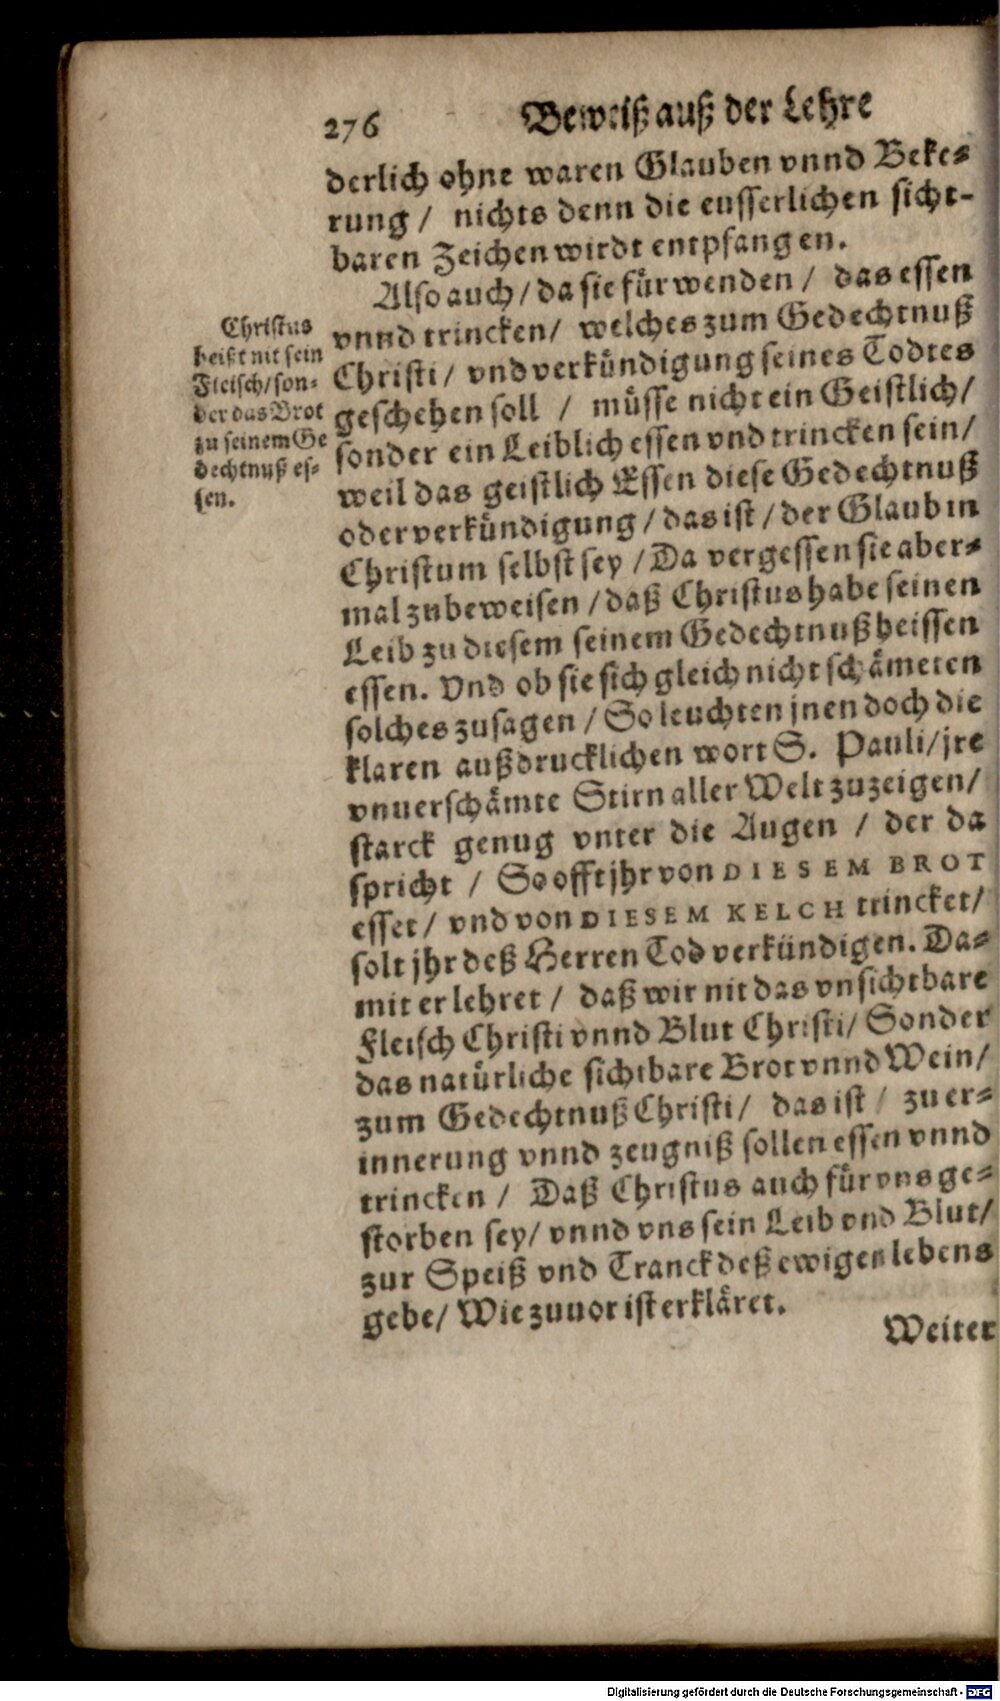 276
Beweiß auß der Lehre
derlich ohne waren Glauben vnnd Beke-
rung / nichts denn die eusserlichen sicht-
baren Zeichen wirdt entpfangen.
Also auch / da sie fürwenden / das essen
vnnd trincken / welches zum Gedechtnuß
Christi / vnd verkündigung seines Todtes
geschehen soll / müsse nicht ein Geistlich /
sonder ein Leiblich essen vnd trincken sein /
weil das geistlich Essen diese Gedechtnuß
oder verkündigung / das ist / der Glaub in
Christum selbst sey / Da vergessen sie aber-
mal zubeweisen / daß Christus habe seinen
Leib zu diesem seinem Gedechtnuß heissen
essen. Vnd ob sie sich gleich nicht schämeten
solches zusagen / So leuchten jnen doch die
klaren außdrucklichen wort S. Pauli / jre
vnuerschämte Stirn aller Welt zuzeigen /
starck genug vnter die Augen / der da
spricht / So offt jhr von DIESEM BROT
esset / vnd von DIESEM KELCH trincket /
solt jhr deß Herren Tod verkündigen. Da-
mit er lehret / daß wir nit das vnsichtbare
Fleisch Christi vnnd Blut Christi / Sonder
das natürliche sichtbare Brot vnnd Wein /
zum Gedechtnuß Christi / das ist / zu er-
innerung vnnd zeugniß sollen essen vnnd
trincken / Daß Christus auch für vns ge-
storben sey / vnnd vns sein Leib vnd Blut /
zur Speiß vnd Tranck deß ewigen lebens
gebe / Wie zuuor ist erkläret.
Weiter
Christus
heißt nit sein
Fleisch / son-
der das Brot
zu seinem Ge
dechtnuß es-
sen.
Digitalisierung gefördert durch die Deutsche Forschungsgemeinschaft - DFG